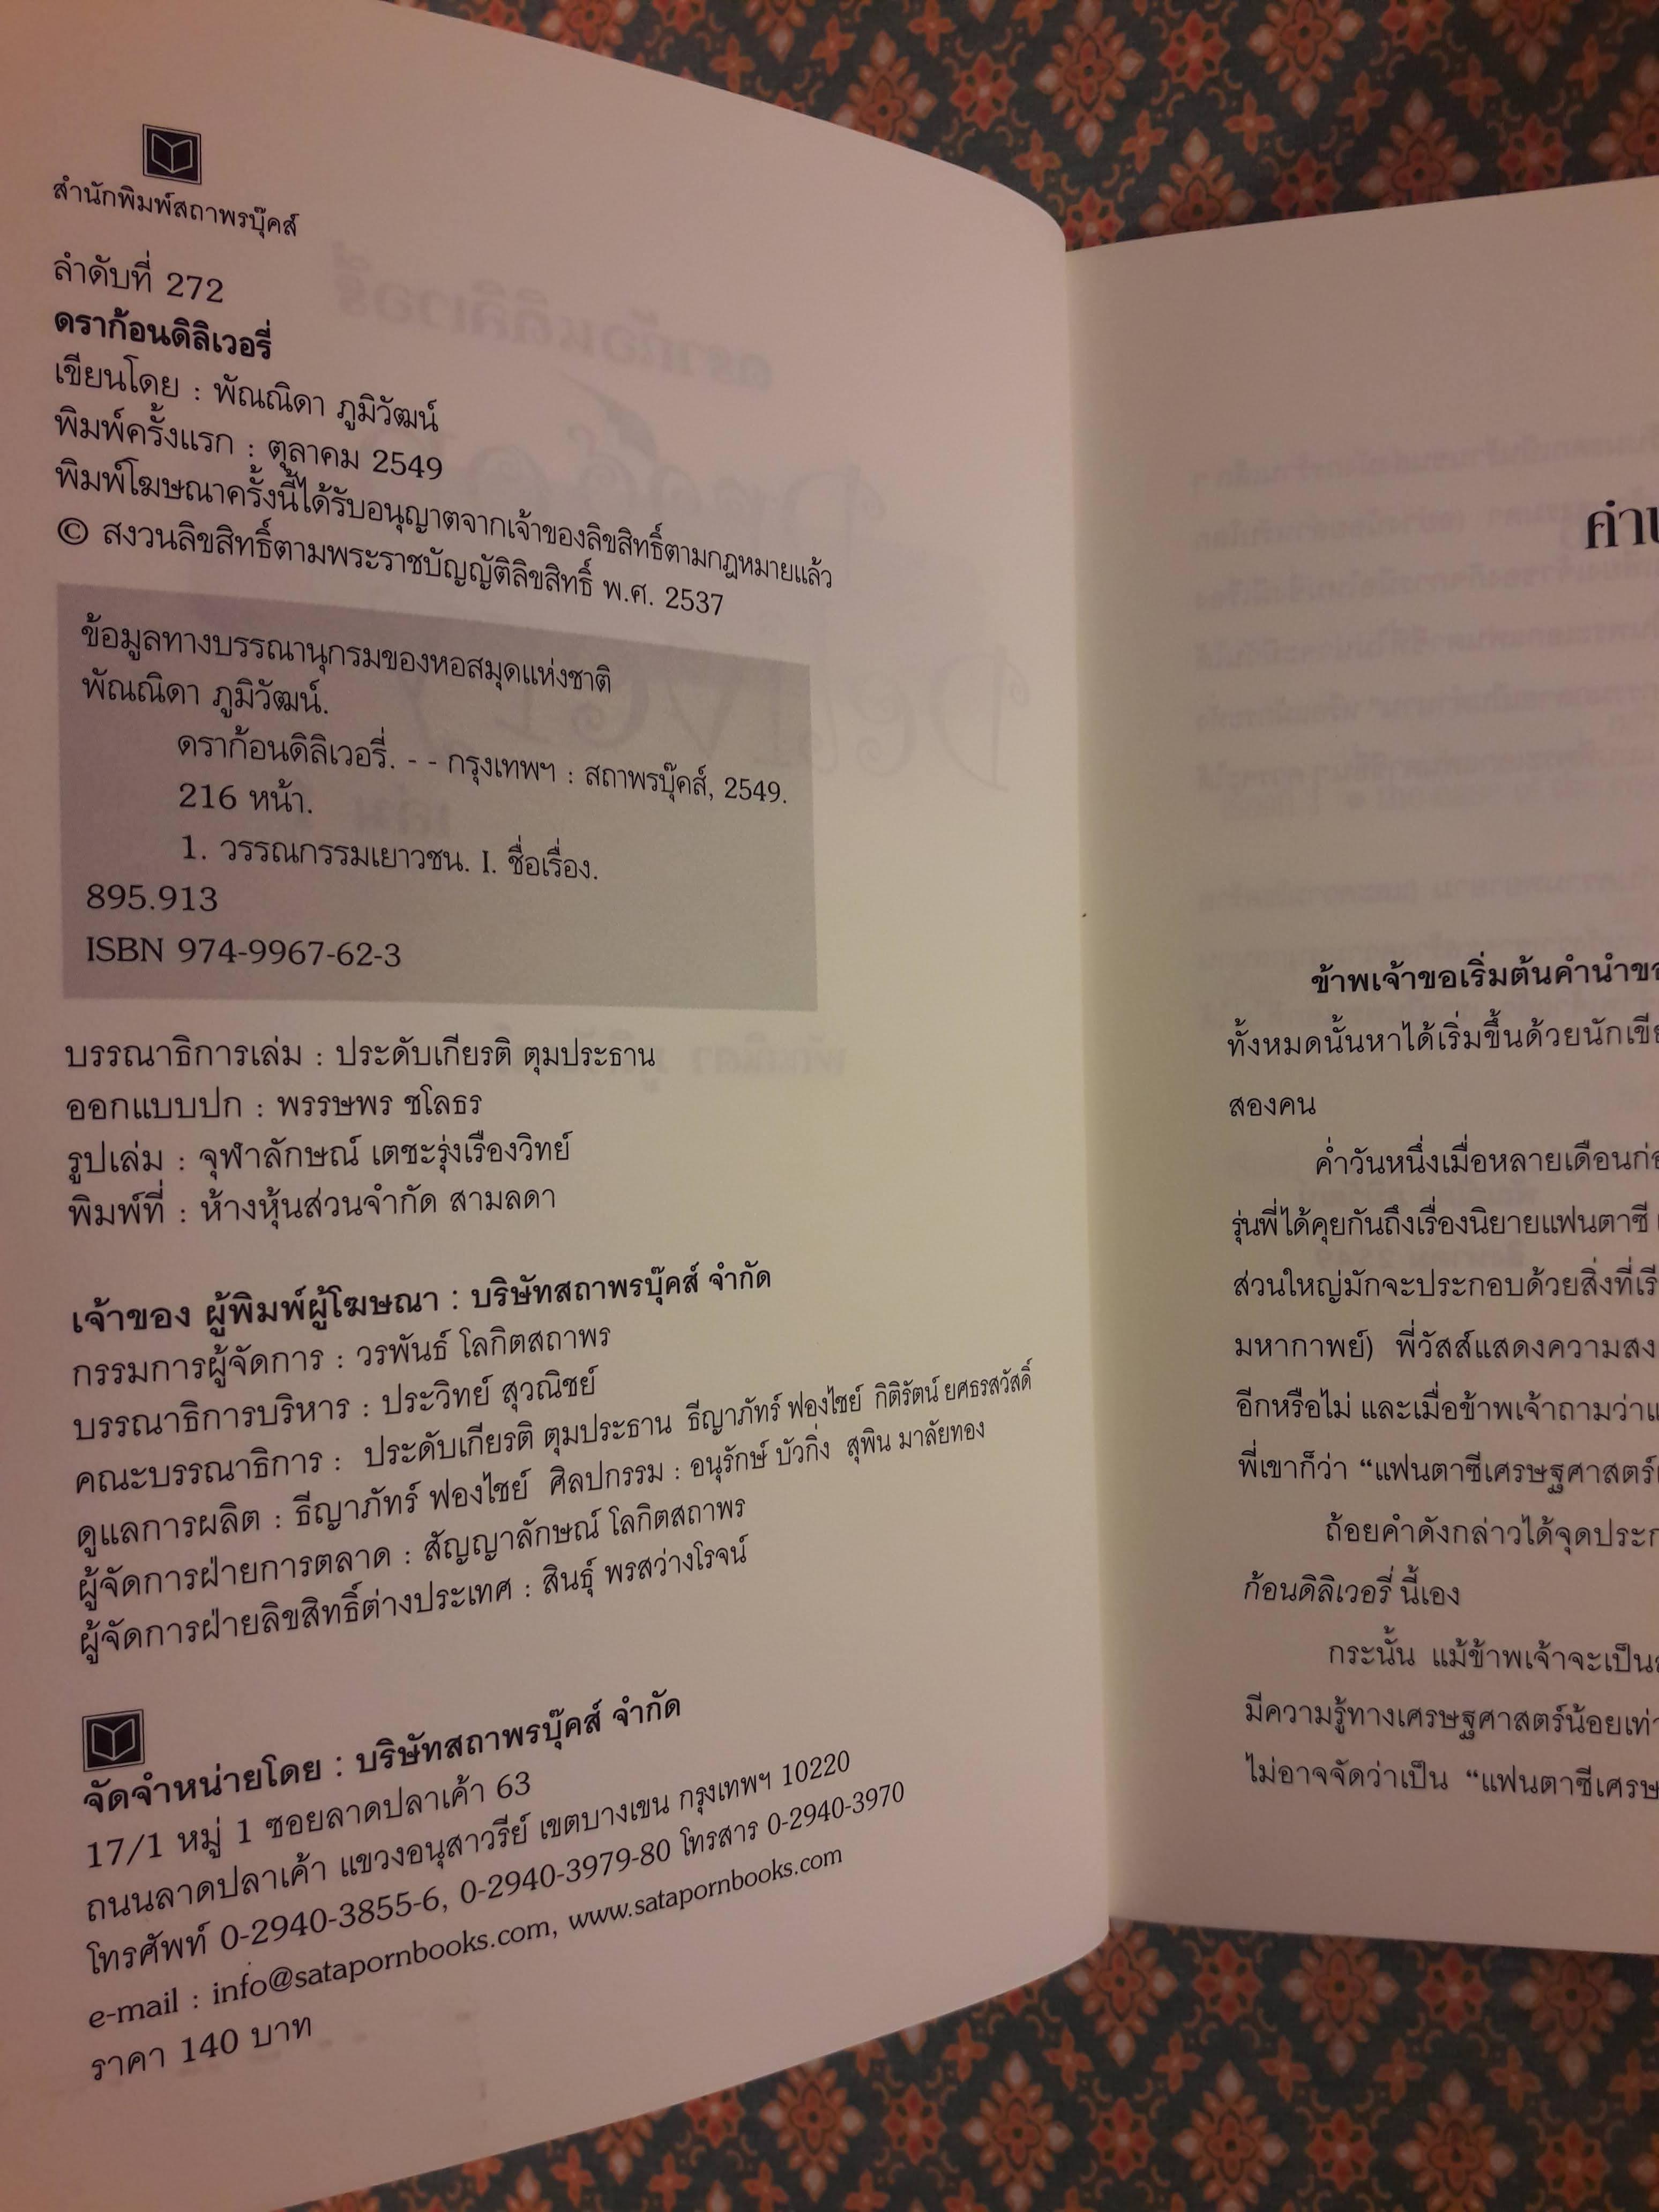 สำนักพิมพ์สถาพรบุ๊คส์
ลำดับที่ 272
ดราก้อนดิลิเวอรี่
เขียนโดย : พัณณิดา ภูมิวัฒน์
พิมพ์ครั้งแรก : ตุลาคม 2549
พิมพ์โฆษณาครั้งนี้ได้รับอนุญาตจากเจ้าของลิขสิทธิ์ตามกฎหมายแล้ว
© สงวนลิขสิทธิ์ตามพระราชบัญญัติลิขสิทธิ์ พ.ศ. 2537
ข้อมูลทางบรรณานุกรมของหอสมุดแห่งชาติ
พัณณิดา ภูมิวัฒน์.
ดราก้อนดิลิเวอรี่. - - กรุงเทพฯ : สถาพรบุ๊คส์, 2549.
216 หน้า.
1. วรรณกรรมเยาวชน. I. ชื่อเรื่อง.
895.913
ISBN 974-9967-62-3
บรรณาธิการเล่ม : ประดับเกียรติ ตุมประธาน
ออกแบบปก : พรรษพร ชโลธร
รูปเล่ม : จุฬาลักษณ์ เตชะรุ่งเรืองวิทย์
พิมพ์ที่ : ห้างหุ้นส่วนจำกัด สามลดา
เจ้าของ ผู้พิมพ์ผู้โฆษณา : บริษัทสถาพรบุ๊คส์ จำกัด
กรรมการผู้จัดการ : วรพันธ์ โลกิตสถาพร
บรรณาธิการบริหาร : ประวิทย์ สุวณิชย์
คณะบรรณาธิการ : ประดับเกียรติ ตุมประธาน ธีญาภัทร์ ฟองไชย์ กิติรัตน์ ยศธรสวัสดิ์
ดูแลการผลิต : ธีญาภัทร์ ฟองไชย์ ศิลปกรรม : อนุรักษ์ บัวกิ่ง สุพิน มาลัยทอง
ผู้จัดการฝ่ายการตลาด : สัญญาลักษณ์ โลกิตสถาพร
ผู้จัดการฝ่ายลิขสิทธิ์ต่างประเทศ : สินธุ์ พรสว่างโรจน์
จัดจำหน่ายโดย : บริษัทสถาพรบุ๊คส์ จำกัด
17/1 หมู่ 1 ซอยลาดปลาเค้า 63
ถนนลาดปลาเค้า แขวงอนุสาวรีย์ เขตบางเขน กรุงเทพฯ 10220
โทรศัพท์ 0-2940-3855-6, 0-2940-3979-80 โทรสาร 0-2940-3970
e-mail : info@satapornbooks.com, www.satapornbooks.com
ราคา 140 บาท
ข้าพเจ้าขอเริ่มต้นคำนำ
ทั้งหมดนั้นหาได้เริ่มขึ้นด้วย
สองคน
ค่ำวันหนึ่งเมื่อหลายเดือน
รุ่นพี่ได้คุยกันถึงเรื่องนิยายแฟนตาซี
ส่วนใหญ่มักจะประกอบด้วยสิ่งที่
มหากาพย์) พี่วัสส์แสดงความ
อีกหรือไม่ และเมื่อข้าพเจ้าถามว่า
พี่เขาก็ว่า “แฟนตาซีเศรษฐศาสตร์
ถ้อยคำดังกล่าวได้จุด
ก้อนดิลิเวอรี่ นี้เอง
กระนั้น แม้ข้าพเจ้าจะเป็น
มีความรู้ทางเศรษฐศาสตร์น้อย
ไม่อาจจัดว่าเป็น “แฟนตาซี